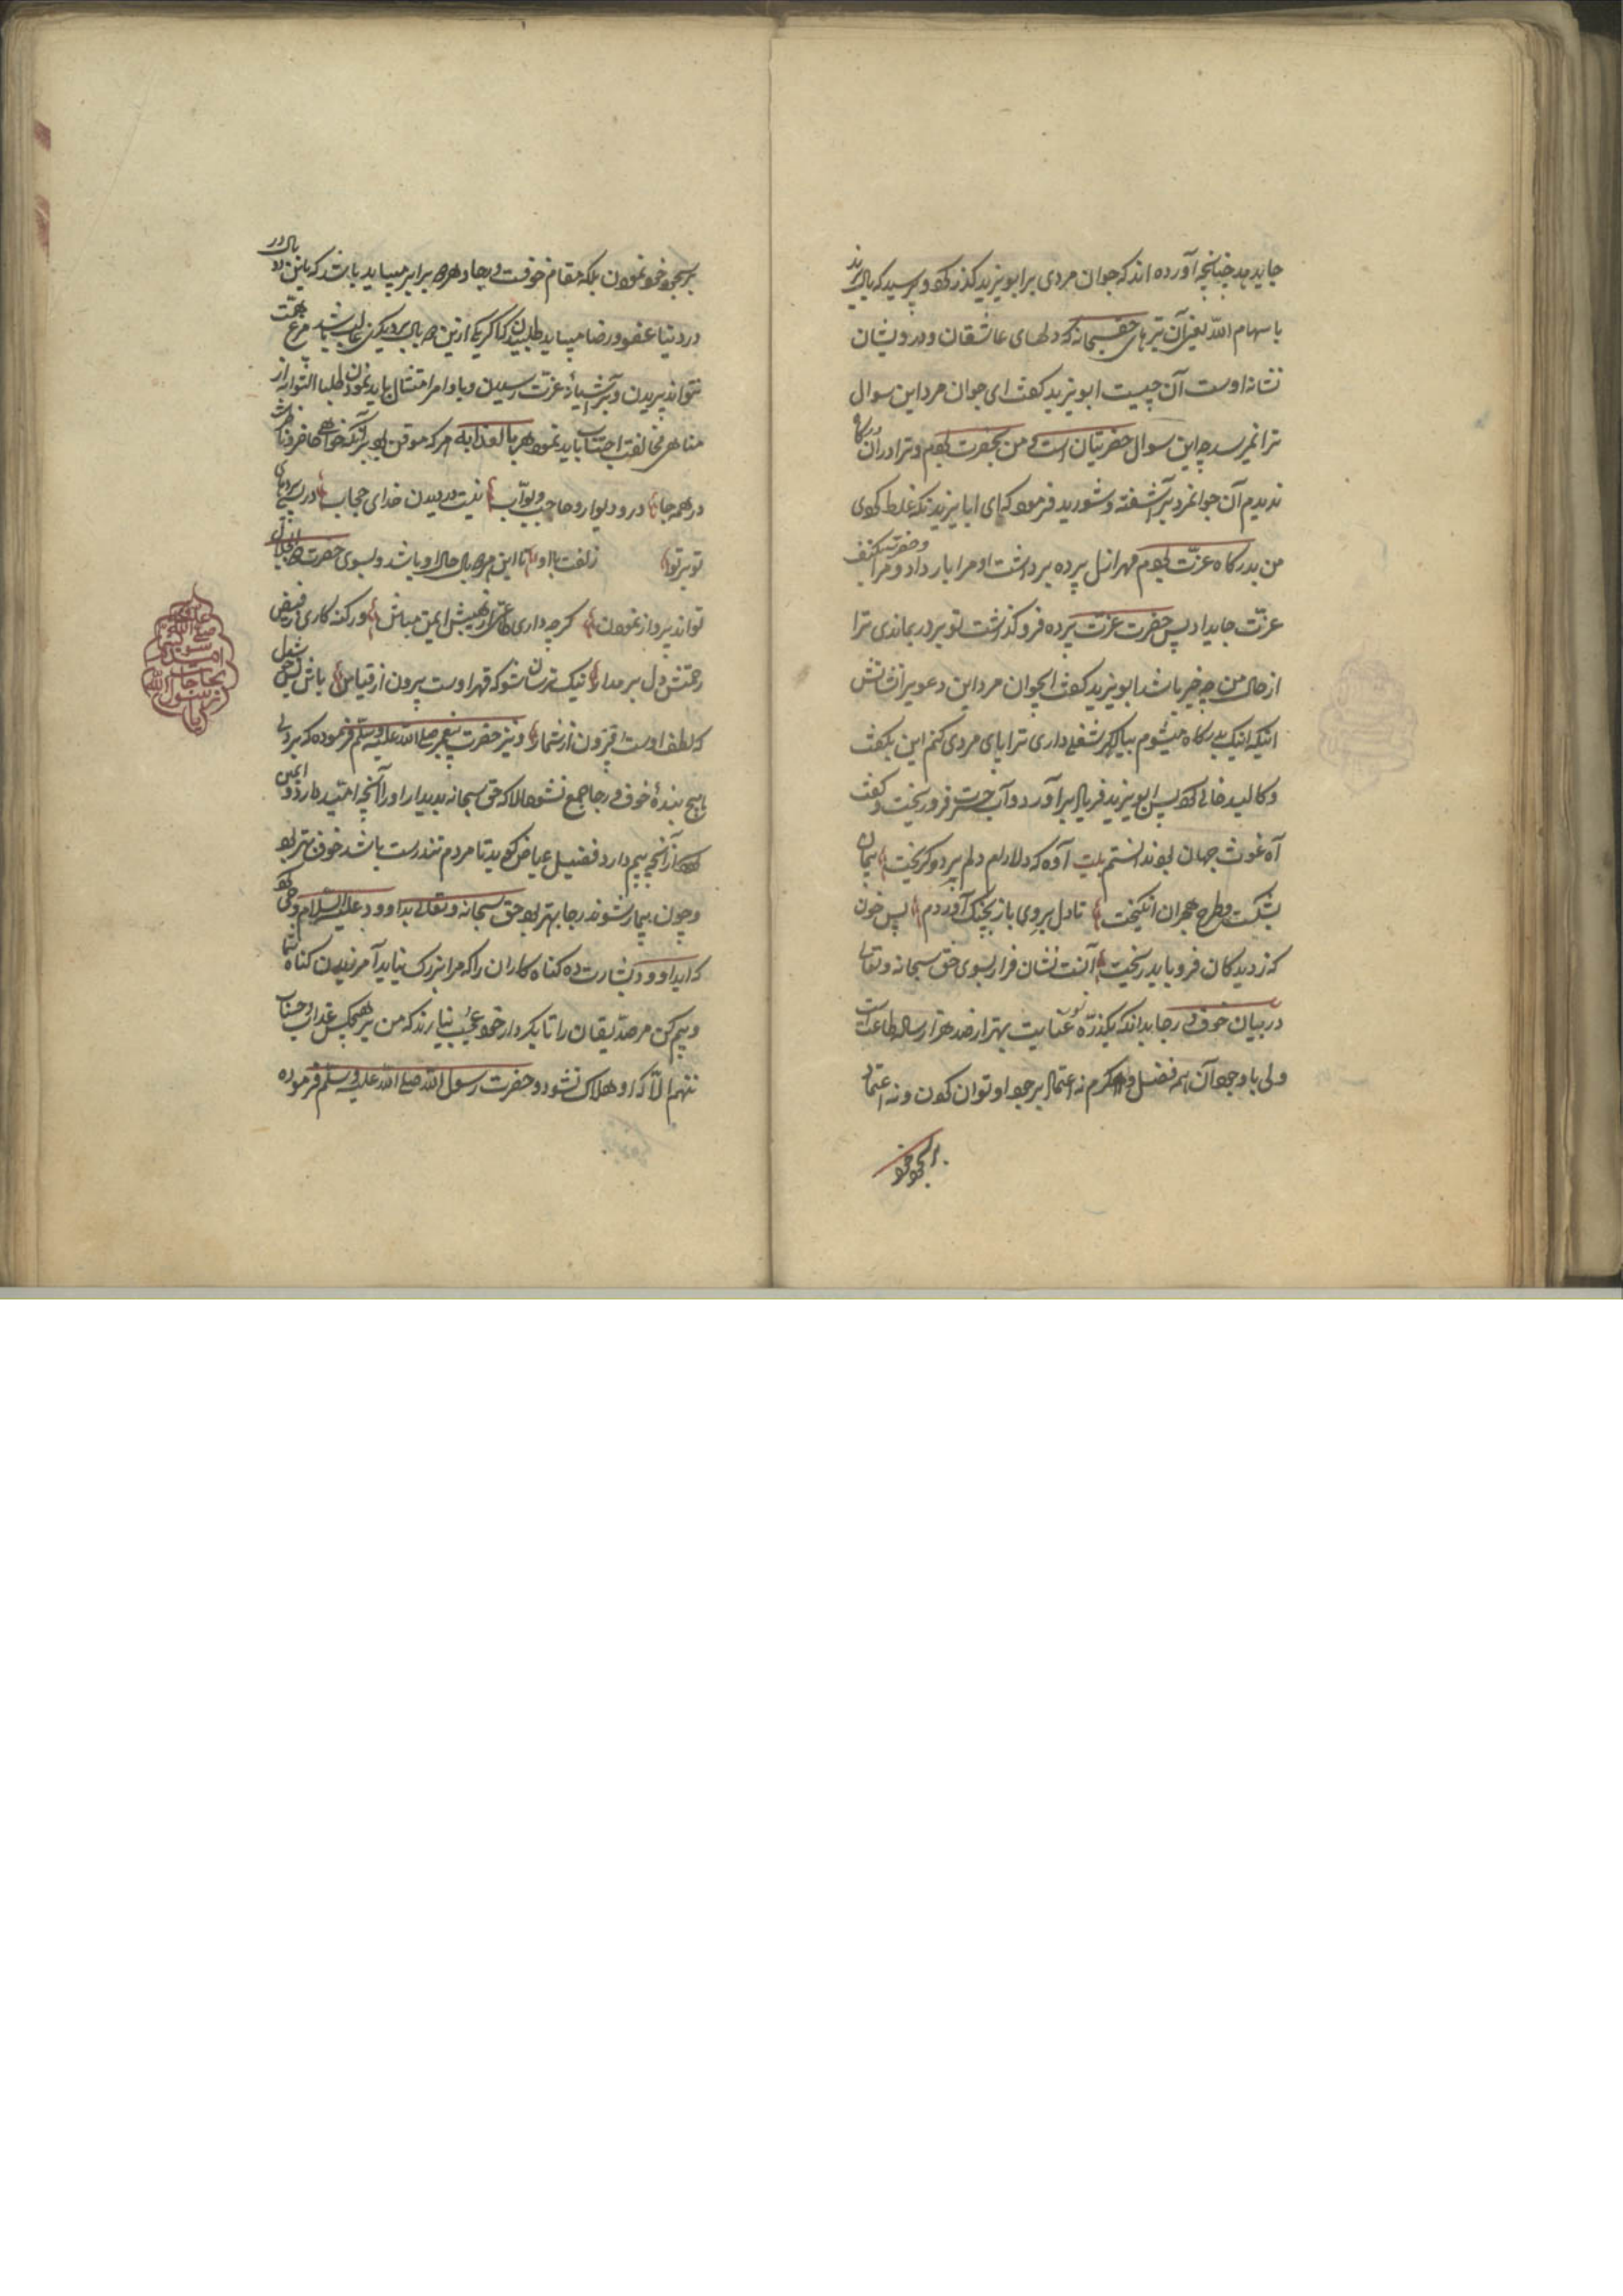 جاید بد چنانچه آورده اند که جوان مردی بر ابویزید گذر کرد و پرسید که یا ابا یزید
با سهام الله یعنی آن تیرهای حقسبحانه که دلهای عاشقان و درویشان
نشانه اوست آن چیست ابویزید گفت ای جوان مرد این سوال
ترا نمیرسد چه این سوال حضرتیان است من بحضرت بودم و ترا در آن درگاه
ندیدم آن جوانمرد برآشفته و شورید فرمود که ای ابایزید نکه غلط کردی
من بدرگاه عزت بودم قهر ازل پرده برداشت او مرا بار داد و مرا
عزت جای داد پس حضرت عزت پرده فرو گذاشت تو بر در بماندی ترا
از حال من چه خبر باشد ابویزید گفت ای جوان مرد این دعویرا نشانش
اینکه اینک بدرگاه میشوم بیا اگر شغلی داری ترا پای مردی کنم این بگفت
و کالبد خالی کرد پس ابویزید فریاد برآورد و آب حسرت فرو ریخت و گفت
آه غوث جهان بود ندانستم بیت آوه که دلارام دلم برد و گریخت پیمان
بشکست و طرح هجران انگیخت تا دل بروی باز بچنگ آوردم پس خون
که ز دیدگان فرو باید ریخت آنست نشان فرار بسوی حق سبحانه و تعالی
در بیان خوف و رجا بدانکه یکذره عنایت بهتر از صد هزار ساله طاعت است
ولی با وجود آن همه فضل و کرم نه اعتماد بر جود او توان کردن و نه اعتماد
بر سجود خود
بر سجود خود نمودن بلکه مقام خوف و رجا و هر دو برابر میباید باشد که باین دو بال در
در دنیا عفو و رضا میباید طلبیدن که اگر یکی ازین دو بال بر دیگری غالب باشد مرغ همت
نتواند پریدن و بر آشیانه عزت رسیدن و باوامر امتثال باید نمودن طلبا لثوابه و از
مناهی مخالفت اجتناب باید نمود هربا لعذابه هر که موقن بود بر آنکه خواهی حاضر و ناظر است
در همه جا در و دیوار و حاجب و بواب نیست در دیدن خدای حجاب در پس پردها
تو بر تو زلفت با او تا این هر دو بال حال او باشد و بسوی حضرت ذو الجلال
تواند پرواز نمودن گر چه داری طاعتی از هیبتش ایمن مباش ور گنه کاری ز فیض
رحمتش دل بر مدار نیک ترسان شو که قهر اوست بیرون از قیاس باش بس خوشدل
که لطف اوست افزون از شمار و نیز حضرت پیغمبر صلی الله علیه و سلم فرموده که بر دل
هیچ بنده خوف و رجا جمع نشود الا که حق سبحانه بدیدار او را آنچه امید دارد و ایمن
کند از آنچه بیم دارد فضیل عیاض گوید تا مردم تندرست باشد خوف بهتر بود
و چون بیمار شوند رجا بهتر بود حق سبحانه و تعالی بداوود علیه السلام وحی کرد
که ای داوود بشارت ده گناه کاران را که مرا بزرگ نیاید آمرزیدن گناه شما
و بیم کن مر صدیقان را تا بکردار خود عجب نیارند که من بر هیچکس عذاب و حساب
ننهم الا که او هلاک نشود و حضرت رسول الله صلی الله علیه و سلم فرموده